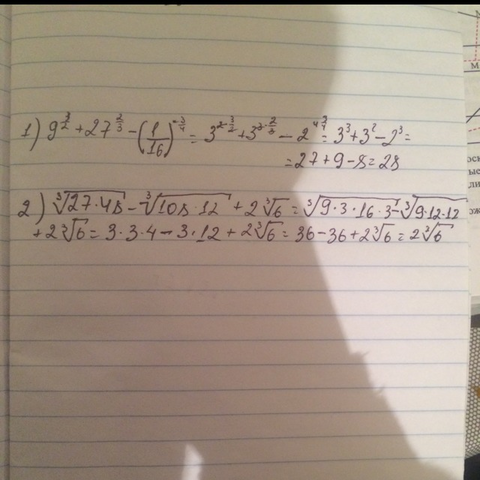 1) 9^{3/2} + 27^{2/3} - (1/16)^{-3/4} = 3^{2·3/2} + 3^{3·2/3} - 2^{4·3/4} = 3³ + 3² - 2³ =
= 27 + 9 - 8 = 28
2) ∛(27·48) - ∛(108·12) + 2∛6 = ∛(9·3·16·3) - ∛(9·12·12)
+ 2∛6 = 3·3·4 - 3·12 + 2∛6 = 36 - 36 + 2∛6 = 2∛6